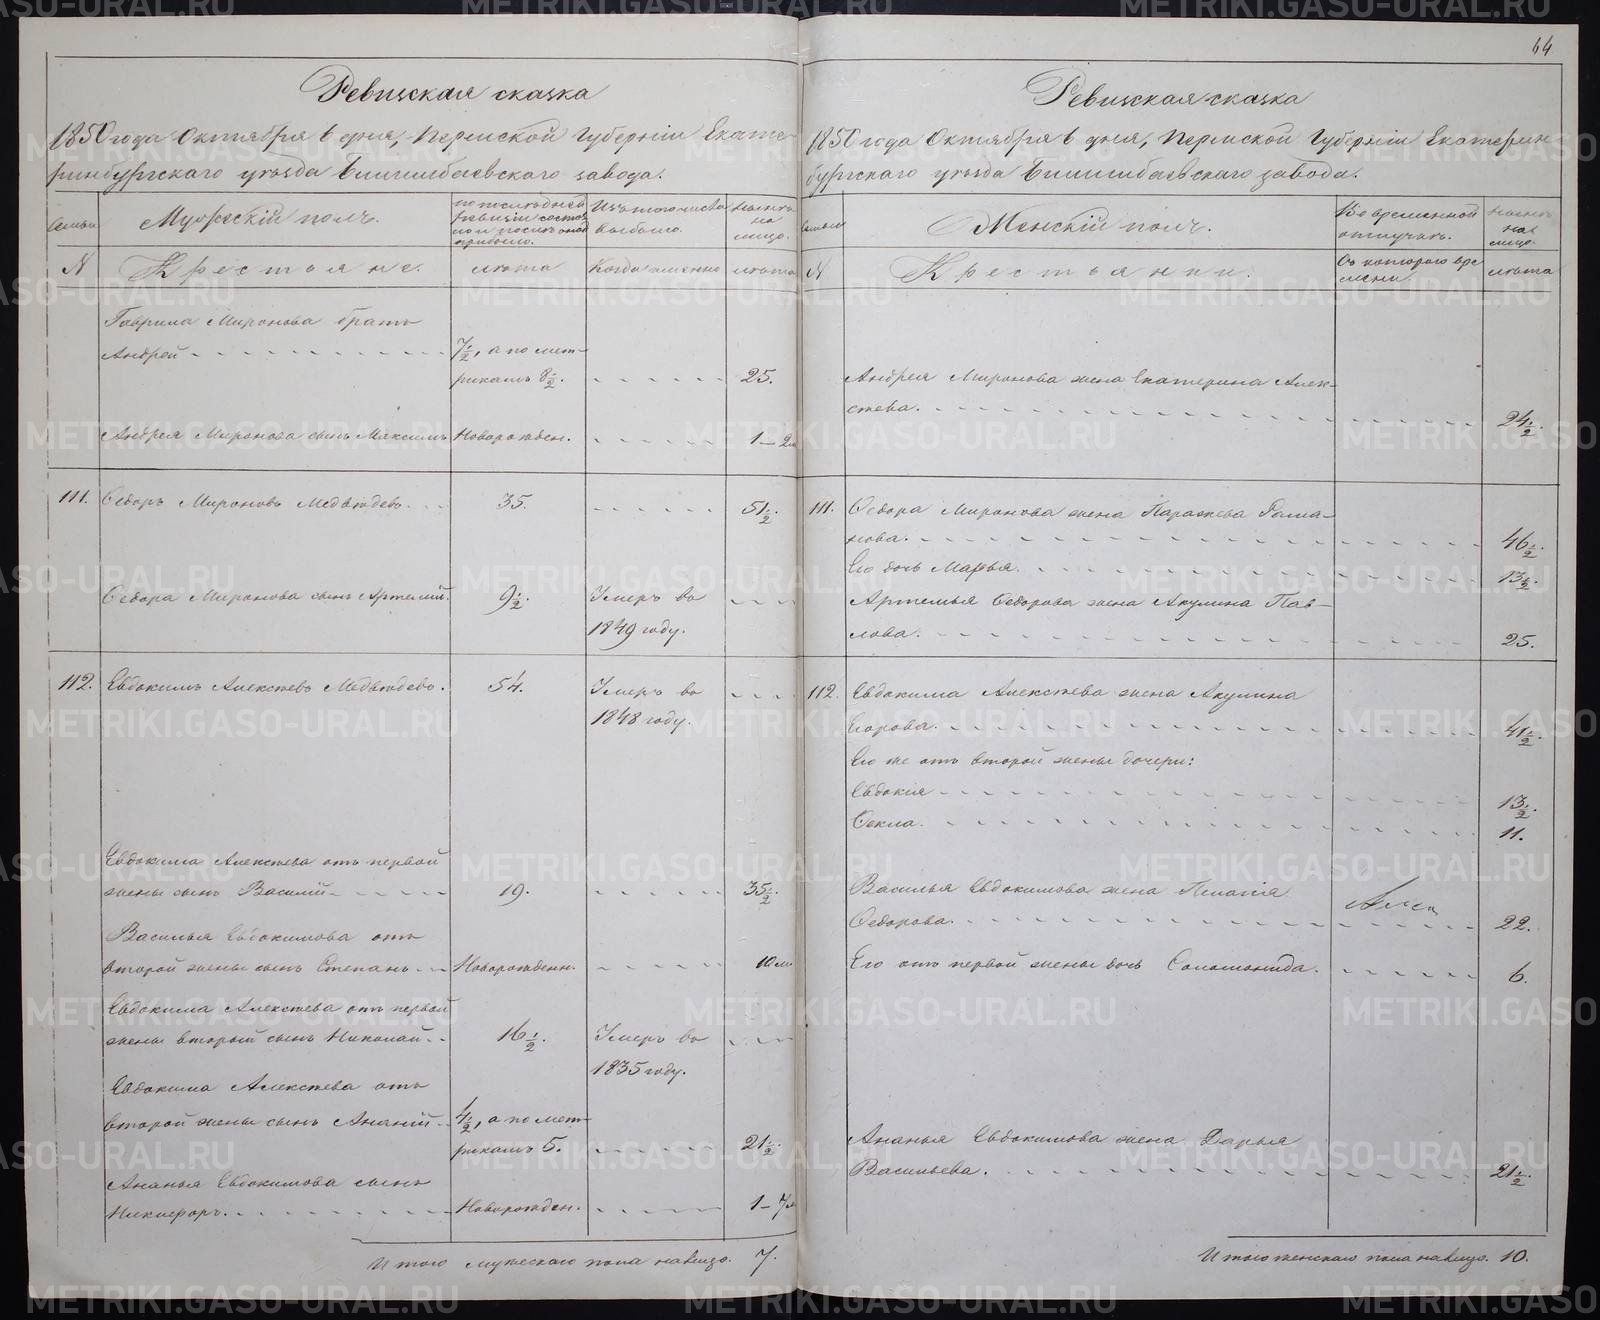 64
Ревизская сказка
1850 года Октября 6 дня, Пермской Губерніи Екате-
ринбургскаго уѣзда Билимбаевскаго завода.
Семьи
Мужескій полъ.
по послѣдней
ревизіи состоя-
ло и послѣ оной
прибыло.
Изъ того числа
выбыло.
Нынѣ
на
лицо.
N
Крестьяне.
лѣта
Когда именно
лѣта
Гаврила Миронова братъ
Андрей
7½, а по мет-
рикамъ 8½.
25.
Андрея Миронова сынъ Максимъ
Новорожден.
1 - 2м
111. Ѳедоръ Мироновъ Медвѣдевъ.
35.
51½.
Ѳедора Миронова сынъ Артемій.
9½.
Умеръ въ
1849 году.
112. Евдокимъ Алексѣевъ Медвѣдевъ.
54.
Умеръ въ
1848 году.
Евдокима Алексѣева отъ первой
жены сынъ Василій
19.
35½.
Василья Евдокимова отъ
второй жены сынъ Степанъ
Новорожденн.
10 м.
Евдокима Алексѣева отъ первой
жены второй сынъ Николай.
16½.
Умеръ въ
1835 году.
Евдокима Алексѣева отъ
второй жены сынъ Ананій
4½, а по мет-
рикамъ 5.
21½.
Ананья Евдокимова сынъ
Никифоръ.
Новорожден.
1 - 7м
Итого мужескаго пола налицо. 7.
Ревизская сказка
1850 года Октября 6 дня, Пермской Губерніи Екатерин-
бургскаго уѣзда Билимбаевскаго завода.
Семьи
Женскій полъ.
Во временной
отлучкѣ.
Нынѣ
на
лицо.
N
Крестьянки.
Съ котораго вре-
мени.
лѣта
Андрея Миронова жена Екатерина Алек-
сѣева.
24½.
111. Ѳедора Миронова жена Парасковья Рома-
нова.
46½.
Его дочь Марья.
13½.
Артемья Ѳедорова жена Акулина Пав-
лова.
25.
112. Евдокима Алексѣева жена Акулина
Егорова.
41½.
Его же отъ второй жены дочери:
Евдокія
13½.
Ѳекла.
11.
Василья Евдокимова жена Пелагія
Ѳедорова.
22.
Его отъ первой жены дочь Соломонида.
6.
Ананья Евдокимова жена Дарья
Васильева.
21½.
Итого женскаго пола налицо. 10.
METRIKI.GASO-URAL.RU